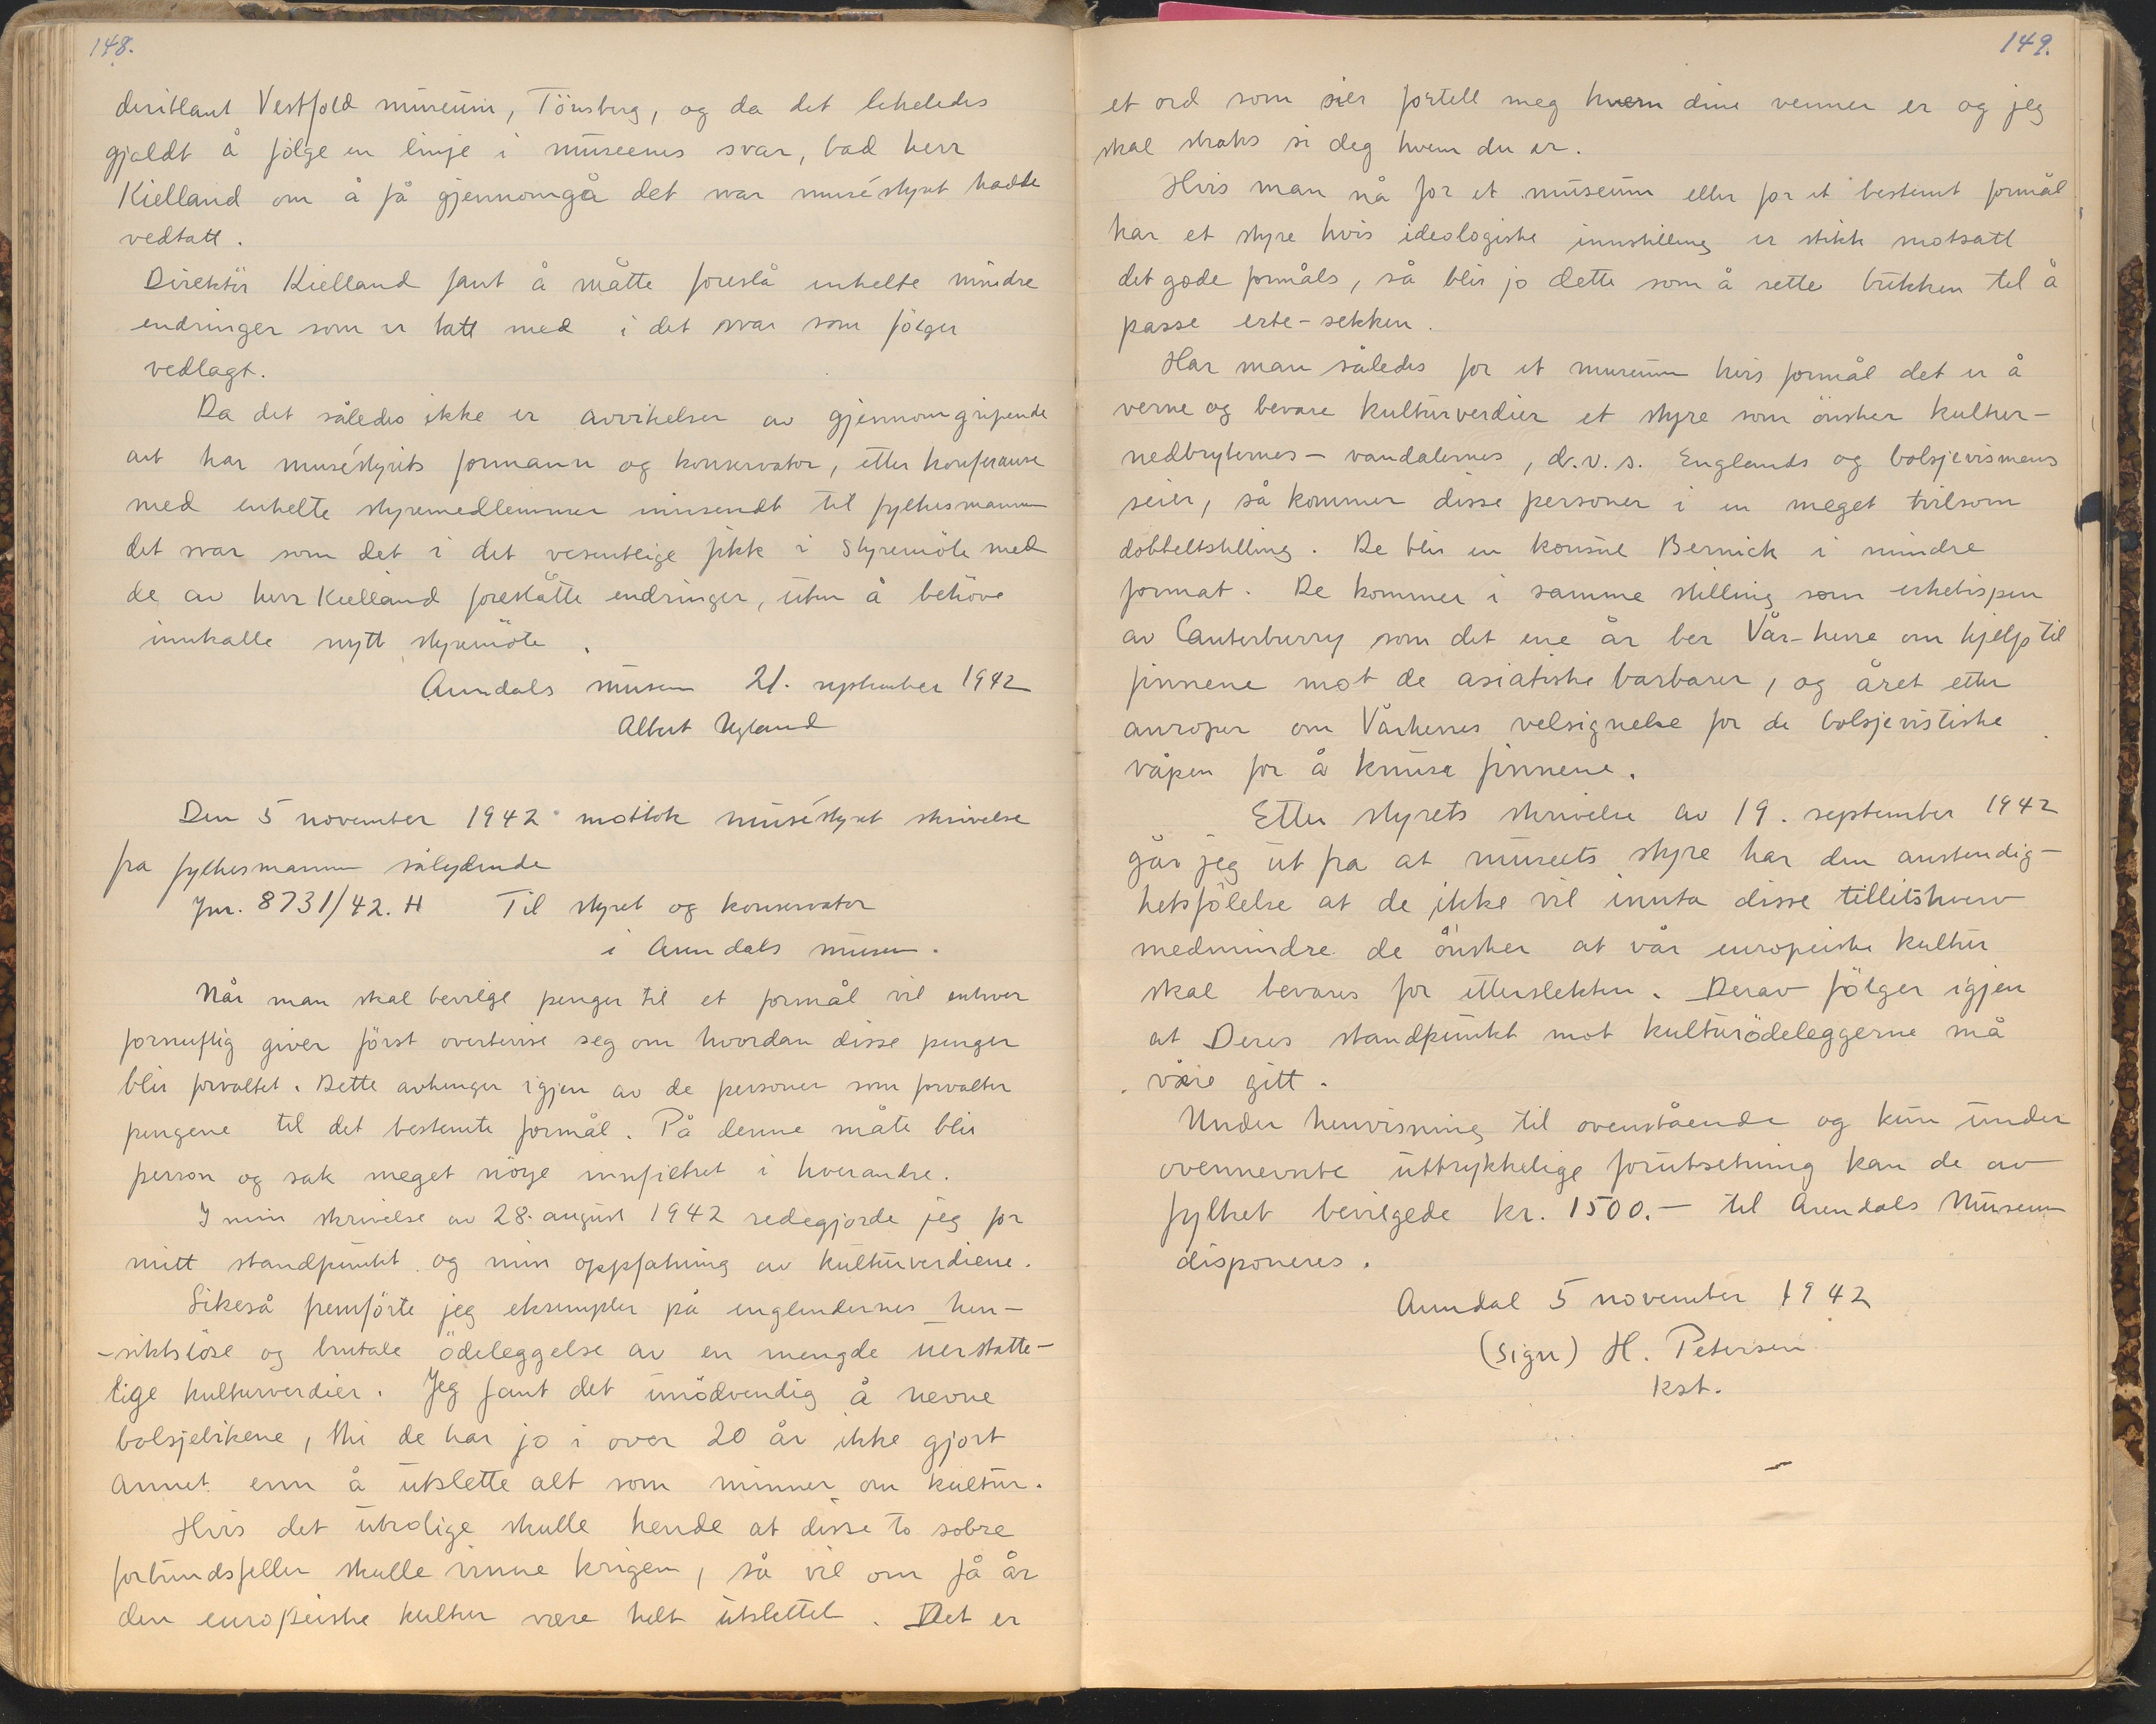 148.
deriblant Vestfold museum, Tönsberg, og da det likeledes
gjaldt å fölge en linje i museenes svar, bad herr
Kielland om å få gjennomgå det svar muséstyret hadde
vedtatt.
Direktör Kielland fant å måtte foreslå enkelte mindre
endringer som er tatt med i det svar som fölger
vedlagt.
Da det således ikke er avvikelser av gjennomgripende
art har muséstyrets formann og konservator, etter konferanse
med enkelte styremedlemmer innsendt til fylkesmannen
det svar som det i det vesentlige fikk i styremöte med
de av herr Kielland foreslåtte endringer, uten å behöve
innkalle nytt styremöte.
Arendals museum 21. september 1942
Albert Ugland
Den 5 november 1942 mottok muséstyret skrivelse
fra fylkesmannen sålydende
Jnr. 8731/42. H Til styret og konservator
i Arendals museum.
Når man skal bevilge penger til et formål vil enhver
fornuftig giver först overbevise seg om hvordan disse penger
blir forvaltet. Dette avhenger igjen av de personer som forvalter
pengene til det bestemte formål. På denne måte blir
person og sak meget nöye innfiltret i hverandre.
I min skrivelse av 28. august 1942 redegjorde jeg for
mitt standpunkt og min oppfatning av kulturverdiene.
Likeså fremförte jeg eksempler på englendernes hen-
-siktslöse og brutale ödeleggelse av en mengde uerstatte-
lige kulturverdier. Jeg fant det unödvendig å nevne
bolsjevikene, thi de har jo i over 20 år ikke gjort
annet enn å utslette alt som minner om kultur.
Hvis det utrolige skulle hende at disse to sobre
forbundsfeller skulle vinne krigen, så vil om få år
den europeiske kultur være helt utslettet. Det er
149.
et ord som sier fortell meg hvem dine venner er og jeg
skal straks si deg hvem du er.
Hvis man nå for et museum eller for et bestemt formål
har et styre hvis ideologiske innstilling er stikk motsatt
det gode formåls, så blir jo dette som å sette bukken til å
passe erte-sekken.
Har man således for et museum hvis formål det er å
verne og bevare kulturverdier et styre som önsker kultur-
nedbryternes - vandalernes, d.v.s. Englands og bolsjevismens
seier, så kommer disse personer i en meget tvilsom
dobbeltstilling. De blir en konsul Bernick i mindre
format. De kommer i samme stilling som erkebispen
av Canterburry som det ene år ber Vår-herre om hjelp til
finnene mot de asiatiske barbarer, og året etter
anroper om Vårherres velsignelse for de bolsjevistiske
våpen for å knuse finnene.
Etter styrets skrivelse av 19. september 1942
går jeg ut fra at museets styre har den anstendig-
hetsfölelse at de ikke vil innta disse tillitshverv
medmindre de önsker at vår europeiske kultur
skal bevares for etterslekten. Derav fölger igjen
at Deres standpunkt mot kulturödeleggerne må
være gitt.
Under henvisning til ovenstående og kun under
ovennevnte uttrykkelige forutsetning kan de av
fylket bevilgede kr. 1500.- til Arendals Museum
disponeres.
Arendal 5 november 1942
(sign) H. Petersen
kst.